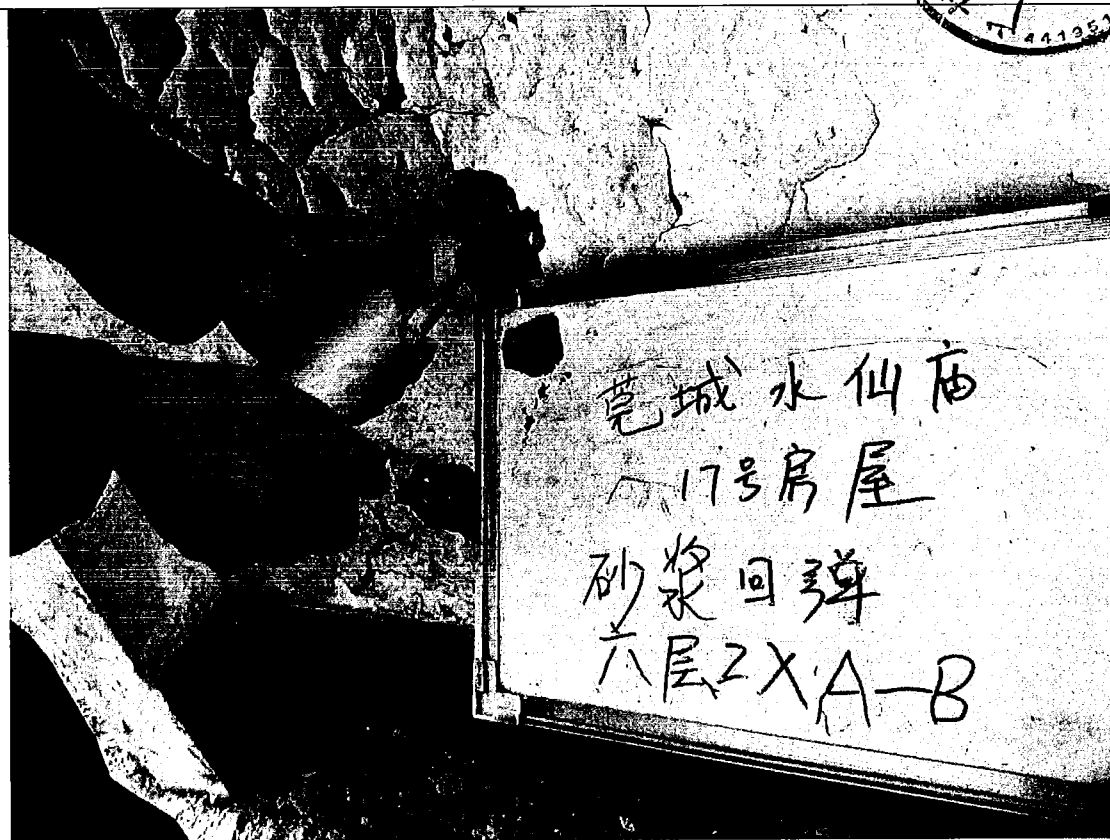 441951
莞城水仙庙
17号房屋
砂浆回弹
六层2XA-B